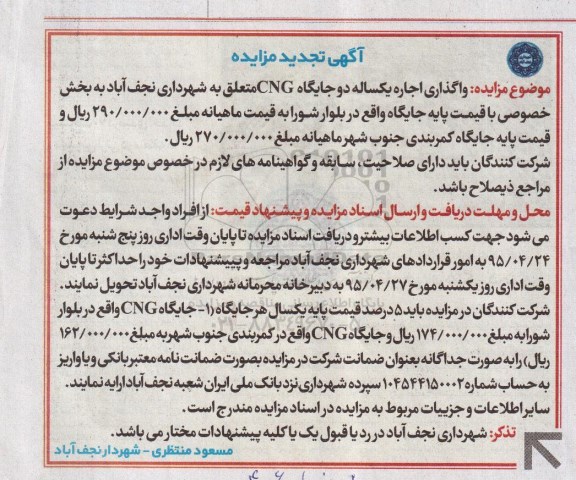 آگهی تجدید مزایده
موضوع مزایده: واگذاری اجاره یکساله دو جایگاه CNG متعلق به شهرداری نجف آباد به بخش
خصوصی با قیمت پایه جایگاه واقع در بلوار شورا به قیمت ماهیانه مبلغ ۲۹۰/۰۰۰/۰۰۰ ریال و
قیمت پایه جایگاه کمربندی جنوب شهر ماهیانه مبلغ ۲۷۰/۰۰۰/۰۰۰ ریال.
شرکت کنندگان باید دارای صلاحیت، سابقه و گواهینامه های لازم در خصوص موضوع مزایده از
مراجع ذیصلاح باشد.
محل و مهلت دریافت و ارسال اسناد مزایده و پیشنهاد قیمت: از افراد واجد شرایط دعوت
می شود جهت کسب اطلاعات بیشتر و دریافت اسناد مزایده تا پایان وقت اداری روز پنج شنبه مورخ
۹۵/۰۴/۲۴ به امور قراردادهای شهرداری نجف آباد مراجعه و پیشنهادات خود را حداکثر تا پایان
وقت اداری روز یکشنبه مورخ ۹۵/۰۴/۲۷ به دبیرخانه محرمانه شهرداری نجف آباد تحویل نمایند.
شرکت کنندگان در مزایده باید ۵ درصد قیمت پایه یکسال هر جایگاه (۱- جایگاه CNG واقع در بلوار
شورا به مبلغ ۱۷۴/۰۰۰/۰۰۰ ریال و جایگاه CNG واقع در کمربندی جنوب شهر به مبلغ ۱۶۲/۰۰۰/۰۰۰
ریال) را به صورت جداگانه بعنوان ضمانت شرکت در مزایده بصورت ضمانت نامه معتبر بانکی و یا واریز
به حساب شماره ۱۰۴۵۴۴۱۵۰۰۰۲ سپرده شهرداری نزد بانک ملی ایران شعبه نجف آباد ارایه نمایند.
سایر اطلاعات و جزییات مربوط به مزایده در اسناد مزایده مندرج است.
تذکر: شهرداری نجف آباد در رد یا قبول یک یا کلیه پیشنهادات مختار می باشد.
مسعود منتظری - شهردار نجف آباد